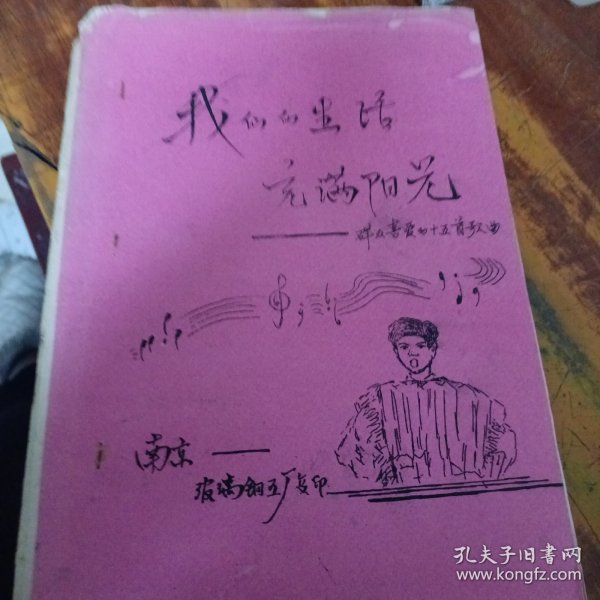 我们的生活
充满阳光
——群众喜爱的十五首歌曲
南京——
玻璃钢五厂复印
孔夫子旧书网
www.kongfz.com